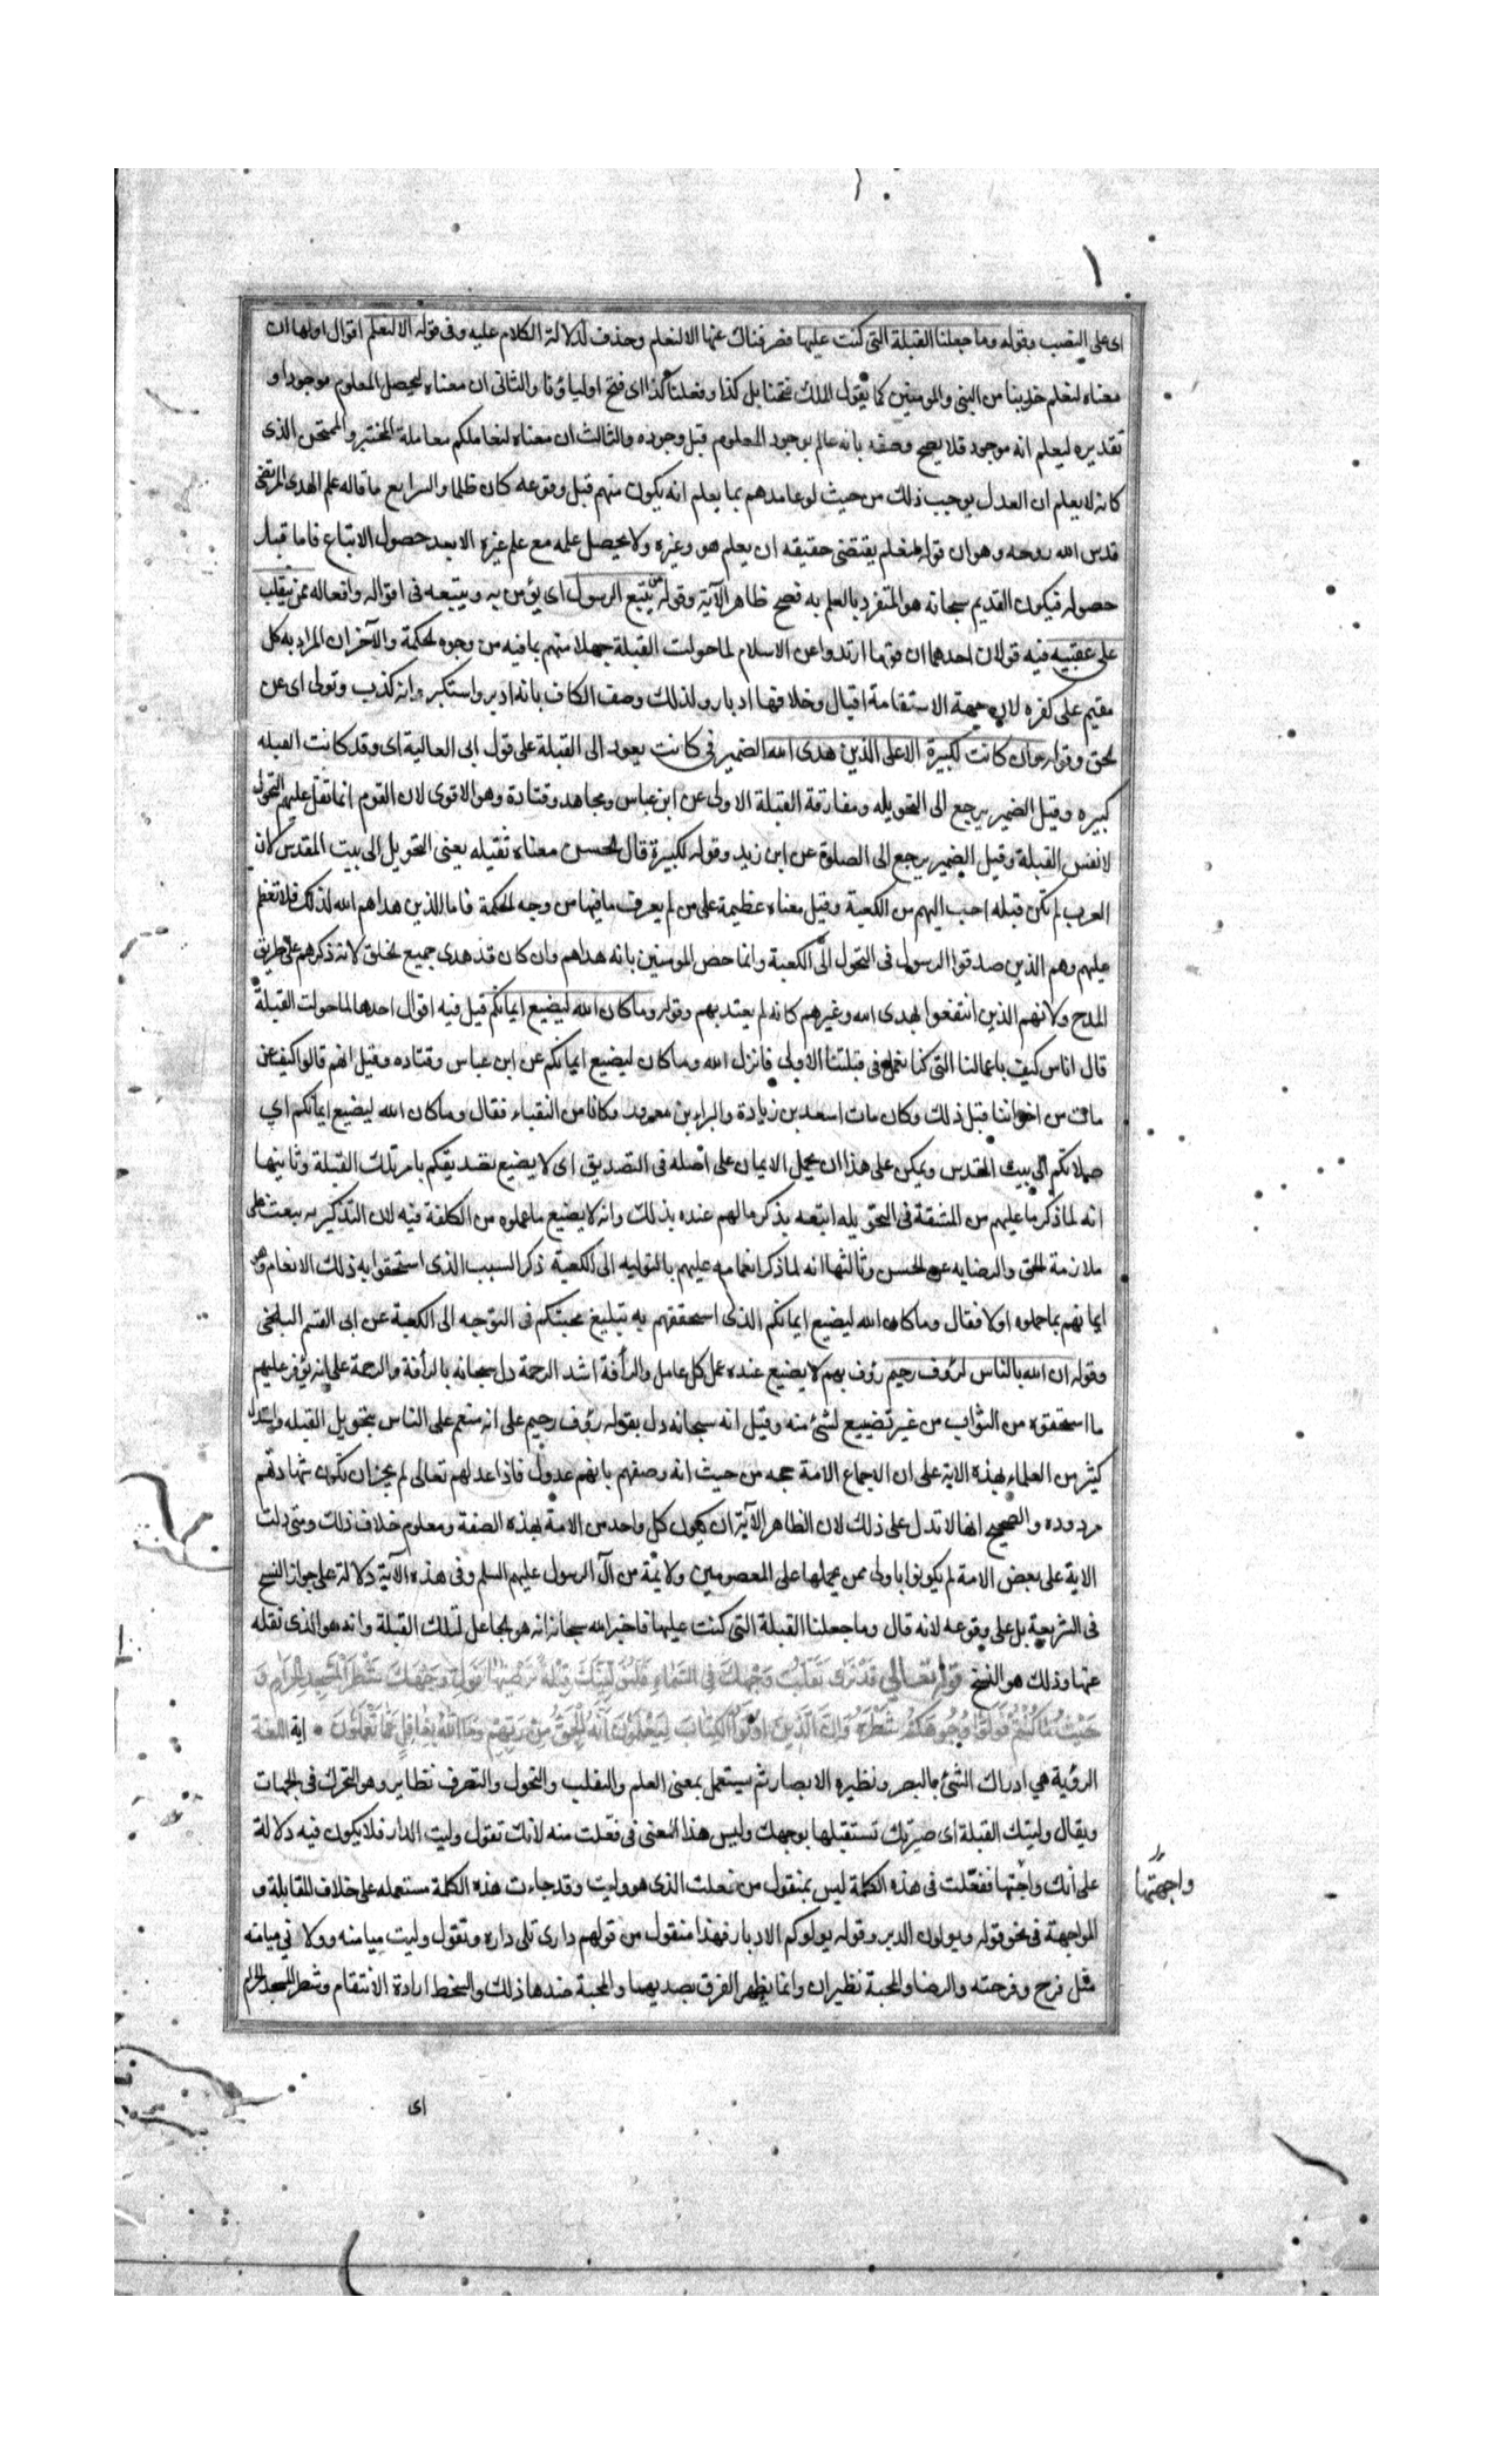 اى على النصب وقوله وما جعلنا القبلة التى كنت عليها فصرفناك عنها الا لنعلم وحذف لدلالة الكلام عليه وفى قوله الا لنعلم اقوال اولها ان
معناه ليعلم حزبنا من النبى والمومنين كما يقول الملك فتحنا بل كذا وفعلنا كذا اى فتح اولياؤنا والثانى ان معناه ليحصل المعلوم موجودا و
تقديره ليعلم انه موجود فلا يصح وصفه بانه عالم بوجود المعلوم قبل وجوده والثالث ان معناه لنعاملكم معاملة المختبر والممتحن الذى
كانه لا يعلم ان العدل يوجب ذلك من حيث لو عاملهم بما يعلم انه يكون منهم قبل وقوعه كان ظلما والرابع ما قاله علم الهدى المرتضى
قدس الله روحه وهو ان قوله لنعلم يقتضى حقيقه ان يعلم هو وغيره ولا يحصل علمه مع علم غيره الا بعد حصول الاتباع فاما قبل
حصوله فيكون القديم سبحانه هو المتفرد بالعلم به فصح ظاهر الآية وقوله من يتبع الرسول اى يؤمن به ويتبعه فى اقواله وافعاله ممن ينقلب
على عقبيه فيه قولان احدهما ان قوما ارتدوا عن الاسلام لما حولت القبلة جهلا منهم بما فيه من وجوه الحكمة والآخر ان المراد به كل
مقيم على كفره لان جهة الاستقامة اقبال وخلافها ادبار ولذلك وصف الكافر بانه ادبر واستكبر وانه كذب وتولى اى عن
الحق وقوله وان كانت لكبيرة الا على الذين هدى الله الضمير فى كانت يعود الى القبلة على قول ابى العالية اى وقد كانت القبله
كبيره وقيل الضمير يرجع الى التحويله ومفارقة القبلة الاولى عن ابن عباس ومجاهد وقتادة وهو الاقوى لان القوم انما ثقل عليهم التحول
لا نفس القبلة وقيل الضمير يرجع الى الصلوة عن ابن زيد وقوله لكبيرة قال الحسن معناه ثقيله يعنى التحويل الى بيت المقدس لان
العرب لم تكن قبله احب اليهم من الكعبة وقيل معناه عظيمة على من لم يعرف ما فيها من وجه الحكمة فاما الذين هداهم الله لذلك فلا تعظم
عليهم وهم الذين صدقوا الرسول فى التحول الى الكعبة وانما خص المومنين بانه هداهم وان كان قد هدى جميع الخلق لانه ذكرهم على طريق
المدح ولانهم الذين انتفعوا بهدى الله وغيرهم كانه لم يعتد بهم وقوله وما كان الله ليضيع ايمانكم قيل فيه اقوال احدها لما حولت القبلة
قال اناس كيف باعمالنا التى كنا نعمل فى قبلتنا الاولى فانزل الله وما كان ليضيع ايمانكم عن ابن عباس وقتاده وقيل انهم قالوا كيف بمن
مات من اخواننا قبل ذلك وكان مات اسعد بن زيادة والبراء بن معرور وكانا من النقباء فقال وما كان الله ليضيع ايمانكم اي
صلاتكم الى بيت المقدس ويمكن على هذا ان يحمل الايمان على اصله فى التصديق اى لا يضيع تصديقكم بامر تلك القبلة وثانيها
انه لما ذكر ما عليهم من المشقة فى التحويله اتبعه بذكر ما لهم عنده بذلك وانه لا يضيع ما عملوه من الكلفة فيه لان التذكير به يبعث على
ملازمة الحق والرضا به عن الحسن وثالثها انه لما ذكر انعامه عليهم بالتوليه الى الكعبة ذكر السبب الذى استحقوا به ذلك الانعام وهو
ايمانهم بما حملوه اولا فقال وما كان الله ليضيع ايمانكم الذى استحققهم به تبليغ محبتكم فى التوجه الى الكعبة عن ابى القسم البلخى
وقوله ان الله بالناس لرؤف رحيم رؤف بهم لا يضيع عنده عمل كل عامل والرأفة اشد الرحمة دل سبحانه بالرأفة والرحمة على انه يوفر عليهم
ما استحقوه من الثواب من غير تضييع لشئ منه وقيل انه سبحانه دل بقوله رؤف رحيم على انه منعم على الناس بتحويل القبله واستدل
كثير من العلماء بهذه الاية على ان الاجماع الامة حجه من حيث انه وصفهم بانهم عدول فاذا عدلهم تعالى لم يجز ان تكون شهادتهم
مردوده والصحيح انها لا تدل على ذلك لان الظاهر الآية ان يكون كل واحد من الامة بهذه الصفة ومعلوم خلاف ذلك ومتى دلت
الاية على بعض الامة لم يكونوا باولى ممن يحملها على المعصومين ولائمة من آل الرسول عليهم السلم وفى هذه الآية دلالة على جواز النسخ
فى الشريعة بل على وقوعه لانه قال وما جعلنا القبلة التى كنت عليها فاخبر الله سبحانه انه هو الجاعل لتلك القبلة وانه هو الذى نقله
عنها وذلك هو النسخ قوله تعالى قَدْ نَرى تَقَلُّبَ وَجْهِكَ فِى السَّمَاءِ فَلَنُوَلِّيَنَّكَ قِبْلَةً تَرْضيهَا فَوَلِّ وَجْهَكَ شَطْرَ الْمَسْجِدِ الْحَرَامِ وَ
حَيْثُ مَا كُنْتُمْ فَوَلُّوا وُجُوهَكُمْ شَطْرَهُ وَاِنَّ الَّذِينَ اُوتُوا الْكِتَابَ لَيَعْلَمُونَ اَنَّهُ الْحَقُّ مِنْ رَبِّهِمْ وَمَا اللهُ بِغَافِلٍ عَمَّا يَعْمَلُونَ اية اللغة
الرؤية هي ادراك الشئ بالبصر ونظيره الابصار ثم يستعمل بمعنى العلم والتقلب والتحول والتصرف نظاير وهو التحرك فى الجهات
ويقال وليتك القبلة اى صيرتك تستقبلها بوجهك وليس هذا المعنى فى فعلت منه لانك تقول وليت الدار فلا يكون فيه دلالة
على أنك واجهتها ففعّلت فى هذه الكلمة ليس بمنقول من فعلت الذى هو وليت وقد جاءت هذه الكلمة مستعمله على خلاف المقابلة و
واجهتها
المواجهة فى نحو قوله ويولون الدبر وقوله يولوكم الادبار فهذا منقول من قولهم دارى تلى داره وتقول وليت ميامنه وولانى ميامنه
مثل فرح وفرحته والرضا والمحبة نظيران وانما يظهر الفرق بضديهما والمحبة ضدها ذلك والسخط ارادة الانتقام وشطر المسجد الحرام
اى